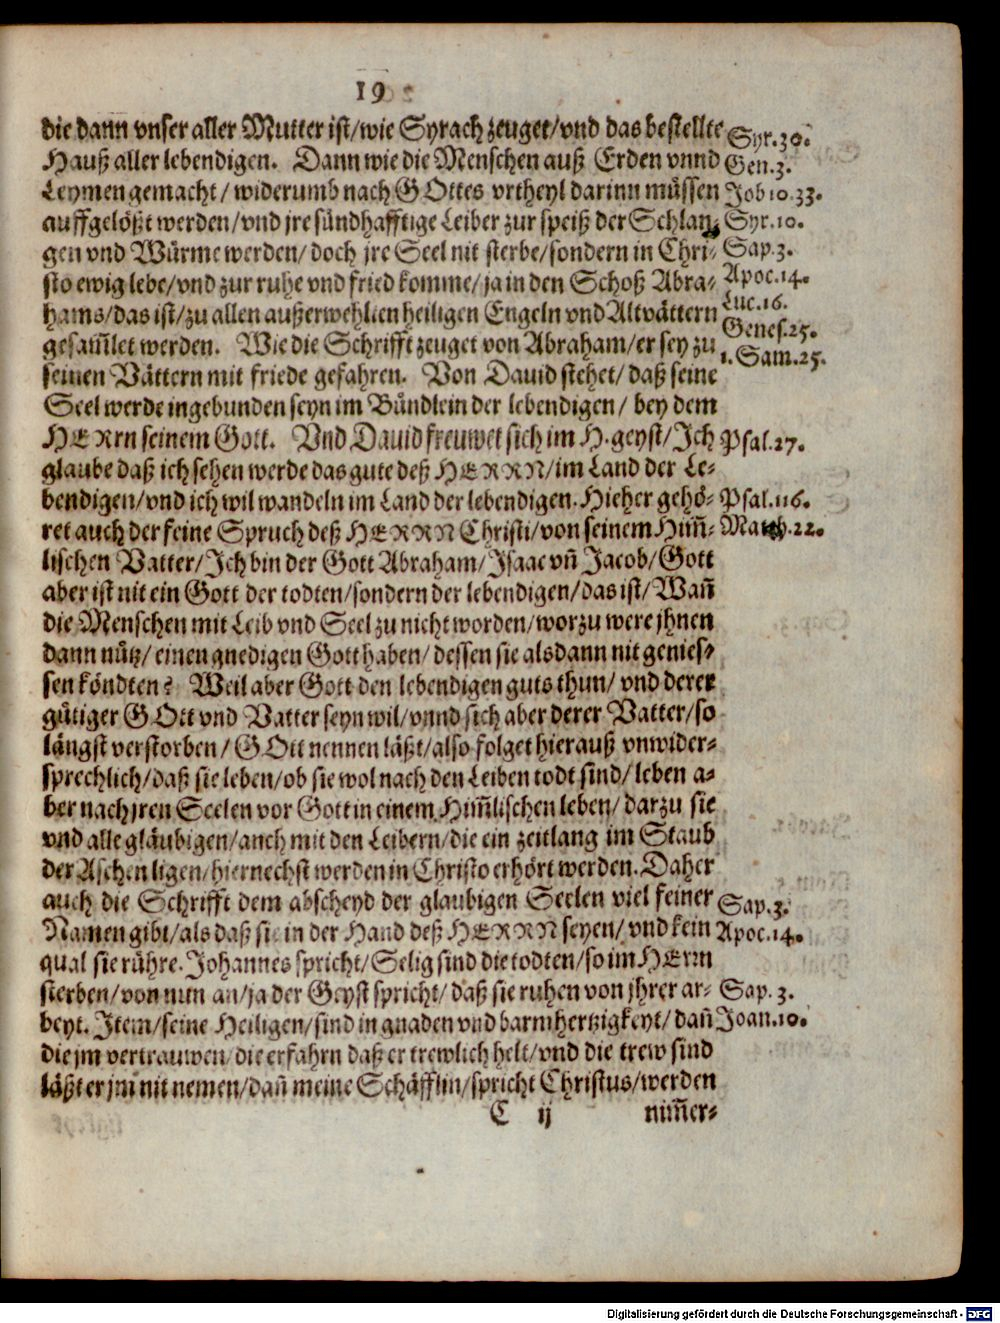 19
die dann vnser aller Mutter ist/wie Syrach zeuget/vnd das bestellte Syr.30.
Hauß aller lebendigen. Dann wie die Menschen auß Erden vnnd Gen.3.
Leymen gemacht/ widerumb nach GOttes vrtheyl darinn müssen Job 10.33.
auffgelößt werden/vnd jre sündhafftige Leiber zur speiß der Schlan- Syr.10.
gen vnd Würme werden/ doch jre Seel nit sterbe/sondern in Chri- Sap.3.
sto ewig lebe/vnd zur ruhe vnd fried komme/ja in den Schoß Abra- Apoc.14.
hams/das ist/zu allen außerwehlten heiligen Engeln vnd Altvättern Luc.16.
gesam̃let werden. Wie die Schrifft zeuget von Abraham/er sey zu Genes.25.
seinen Vättern mit friede gefahren. Von Dauid stehet/ daß seine 1.Sam.25.
Seel werde ingebunden seyn im Bündlein der lebendigen/ bey dem
HERrn seinem Gott. Vnd Dauid freuwet sich im H.geyst/Jch Psal.27.
glaube daß ich sehen werde das gute deß HERRN/im Land der Le-
bendigen/vnd ich wil wandeln im Land der lebendigen. Hieher gehö- Psal.116.
ret auch der feine Spruch deß HERRN Christi/von seinem Him̃- Math.22.
lischen Vatter/Jch bin der Gott Abraham/Jsaac vñ Jacob/Gott
aber ist nit ein Gott der todten/sondern der lebendigen/das ist/Wañ
die Menschen mit Leib vnd Seel zu nicht worden/worzu were jhnen
dann nütz/einen gnedigen Gott haben/dessen sie alsdann nit genies-
sen köndten? Weil aber Gott den lebendigen guts thun/ vnd derer
gütiger GOtt vnd Vatter seyn wil/vnnd sich aber derer Vatter/so
längst verstorben/GOtt nennen läßt/also folget hierauß vnwider-
sprechlich/daß sie leben/ob sie wol nach den Leiben todt sind/leben a-
ber nach jren Seelen vor Gott in einem Him̃lischen leben/ darzu sie
vnd alle gläubigen/auch mit den Leibern/die ein zeitlang im Staub
der Aschen ligen/hiernechst werden in Christo erhört werden. Daher
auch die Schrifft dem abscheyd der glaubigen Seelen viel feiner Sap.3.
Namen gibt/als daß sie in der Hand deß HERRN seyen/vnd kein Apoc.14.
qual sie rühre. Johannes spricht/Selig sind die todten/so im HErrn
sterben/von nun an/ja der Geyst spricht/daß sie ruhen von jhrer ar- Sap.3.
beyt. Jtem/seine Heiligen/sind in gnaden vnd barmhertzigkeyt/dañ Joan.10.
die jm vertrauwen/die erfahrn daß er trewlich helt/vnd die trew sind
läßt er jm nit nemen/dañ meine Schäfflin/spricht Christus/werden
C ij nim̃er-
Digitalisierung gefördert durch die Deutsche Forschungsgemeinschaft - DFG